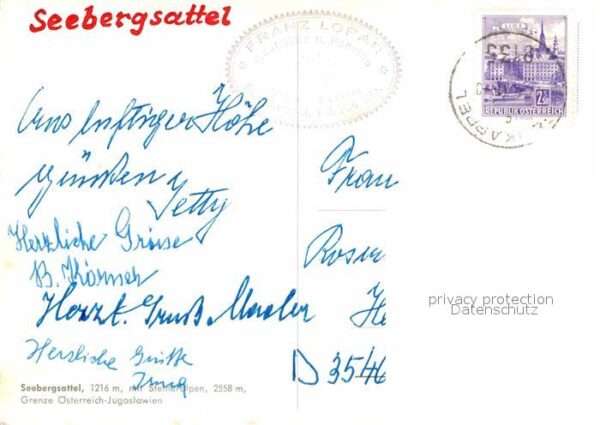 Seebergsattel
FRANZ LOPAR
Gasthaus u. Pension
REPUBLIK ÖSTERREICH
2 S
KAPPEL
Aus luftiger Höhe
grüßen
Jetty
Herzliche Grüsse
B. Körner
Herzl. Gruß
Herzliche Grüße
Frau
D 3546
privacy protection
Datenschutz
Seebergsattel, 1216 m, mit Steiner Alpen, 2558 m,
Grenze Österreich-Jugoslawien